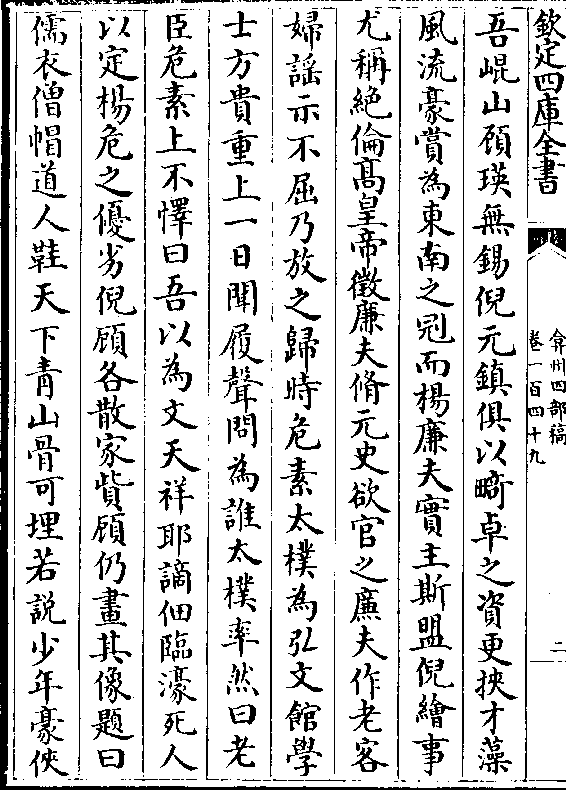 欽定四庫全書
弇州四部稿
卷一百四十九
二
吾崐山顧瑛無錫倪元鎮俱以畸卓之資更挾才藻
風流豪賞為東南之冠而楊廉夫實主斯盟倪繪事
尤稱絶倫髙皇帝徵廉夫脩元史欲官之廉夫作老客
婦謡示不屈乃放之歸時危素太樸為弘文館學
士方貴重上一日聞履聲問為誰太樸率然曰老
臣危素上不懌曰吾以為文天祥耶謫佃臨濠死人
以定楊危之優劣倪顧各散家貲顧仍畫其像題曰
儒衣僧帽道人鞋天下青山骨可埋若説少年豪俠